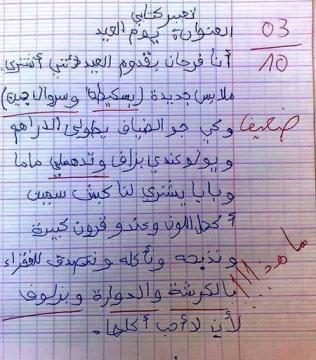 تعبير كتابي
العنوان: يوم العيد
03
10
أنا فرحان بقدوم العيد لأنني أشتري
ملابس جديدة (بسكيطة وسروال جين)
ضعيف
وكي جو الضياف يعطوني الدراهم
ويولو عندي بزاف وتدهملي ماما
وبابا يشتري لنا كبش سمين
أكحل اللون وعندو قرون كبيرة
ونذبحه ونأكله ونتصدق للفقراء
ما هذا!!!
بالكرشة والدوارة وبزلوف
لأني لا أحب أكلها.